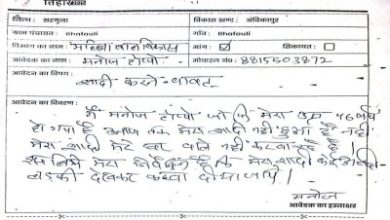 जिला : सरगुजा विकास खण्ड : अंबिकापुर
ग्राम पंचायत : Bhafauli गाँव : Bhafauli
विभाग का नाम : महिला बाल विकास मांग शिकायत
आवेदक का नाम : मनोज टोप्पो मोबाईल नं : 8815603872
आवेदन का विषय :
शादी करने बाबत
आवेदन का विवरण :
मैं मनोज टोप्पो जो कि मेरा उम्र 46 वर्ष
हो गया है आज तक मेरा शादी नहीं हुआ है नहीं
मेरा शादी मेरे घर वाले नहीं करवाते है
इस लिये मेरा निवेदन है कि मेरा शादी
लड़की देखकर करवा दीजिये।
मनोज
आवेदक का हस्ताक्षर